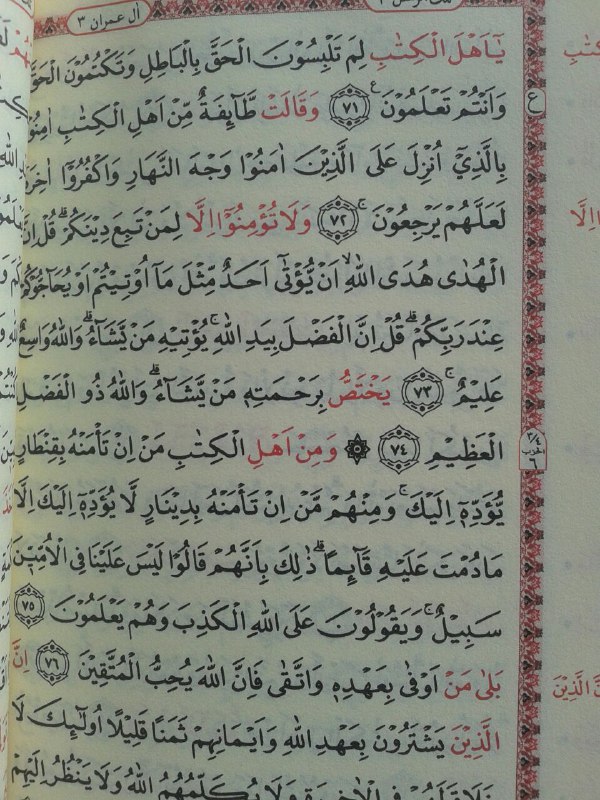 اٰل عمران ٣
يَٓا اَهْلَ الْكِتٰبِ لِمَ تَلْبِسُوْنَ الْحَقَّ بِالْبَاطِلِ وَتَكْتُمُوْنَ الْحَقَّ
وَاَنْتُمْ تَعْلَمُوْنَ ۝٧١ وَقَالَتْ طَّآئِفَةٌ مِّنْ اَهْلِ الْكِتٰبِ اٰمِنُوْا
بِالَّذِيْٓ اُنْزِلَ عَلَى الَّذِيْنَ اٰمَنُوْا وَجْهَ النَّهَارِ وَاكْفُرُوْٓا اٰخِرَهٗ
لَعَلَّهُمْ يَرْجِعُوْنَ ۝٧٢ وَلَا تُؤْمِنُوْٓا اِلَّا لِمَنْ تَبِعَ دِيْنَكُمْ ۗ قُلْ اِنَّ
الْهُدٰى هُدَى اللّٰهِ ۙ اَنْ يُّؤْتٰٓى اَحَدٌ مِّثْلَ مَآ اُوْتِيْتُمْ اَوْ يُحَآجُّوْكُمْ
عِنْدَ رَبِّكُمْ ۗ قُلْ اِنَّ الْفَضْلَ بِيَدِ اللّٰهِ ۚ يُؤْتِيْهِ مَنْ يَّشَآءُ ۗ وَاللّٰهُ وَاسِعٌ
عَلِيْمٌ ۚ ۝٧٣ يَخْتَصُّ بِرَحْمَتِهٖ مَنْ يَّشَآءُ ۗ وَاللّٰهُ ذُو الْفَضْلِ
الْعَظِيْمِ ۝٧٤ ۞ وَمِنْ اَهْلِ الْكِتٰبِ مَنْ اِنْ تَأْمَنْهُ بِقِنْطَارٍ
يُّؤَدِّهٖٓ اِلَيْكَ ۚ وَمِنْهُمْ مَّنْ اِنْ تَأْمَنْهُ بِدِيْنَارٍ لَّا يُؤَدِّهٖٓ اِلَيْكَ اِلَّا
مَا دُمْتَ عَلَيْهِ قَآئِمًا ۗ ذٰلِكَ بِاَنَّهُمْ قَالُوْا لَيْسَ عَلَيْنَا فِى الْاُمِّيّٖنَ
سَبِيْلٌ ۚ وَيَقُوْلُوْنَ عَلَى اللّٰهِ الْكَذِبَ وَهُمْ يَعْلَمُوْنَ ۝٧٥
بَلٰى مَنْ اَوْفٰى بِعَهْدِهٖ وَاتَّقٰى فَاِنَّ اللّٰهَ يُحِبُّ الْمُتَّقِيْنَ ۝٧٦ اِنَّ
الَّذِيْنَ يَشْتَرُوْنَ بِعَهْدِ اللّٰهِ وَاَيْمَانِهِمْ ثَمَنًا قَلِيْلًا اُولٰٓئِكَ لَا
خَلَاقَ لَهُمْ فِى الْاٰخِرَةِ وَلَا يُكَلِّمُهُمُ اللّٰهُ وَلَا يَنْظُرُ اِلَيْهِمْ